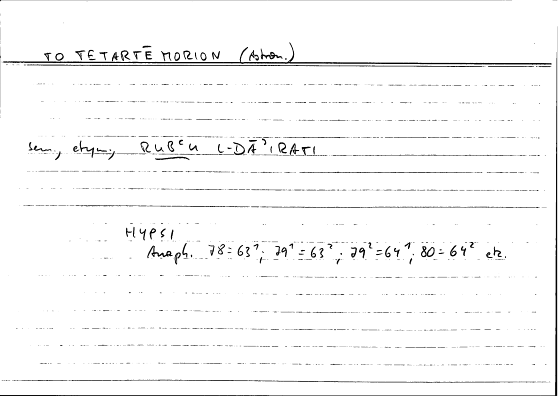 TO TETARTĒ MORION (Astron.)
sem., etym., RUBᶜU L-DĀʾIRATI
HYPSI
Anaph. 78=63¹; 79¹=63²; 79²=64¹; 80=64² etc.